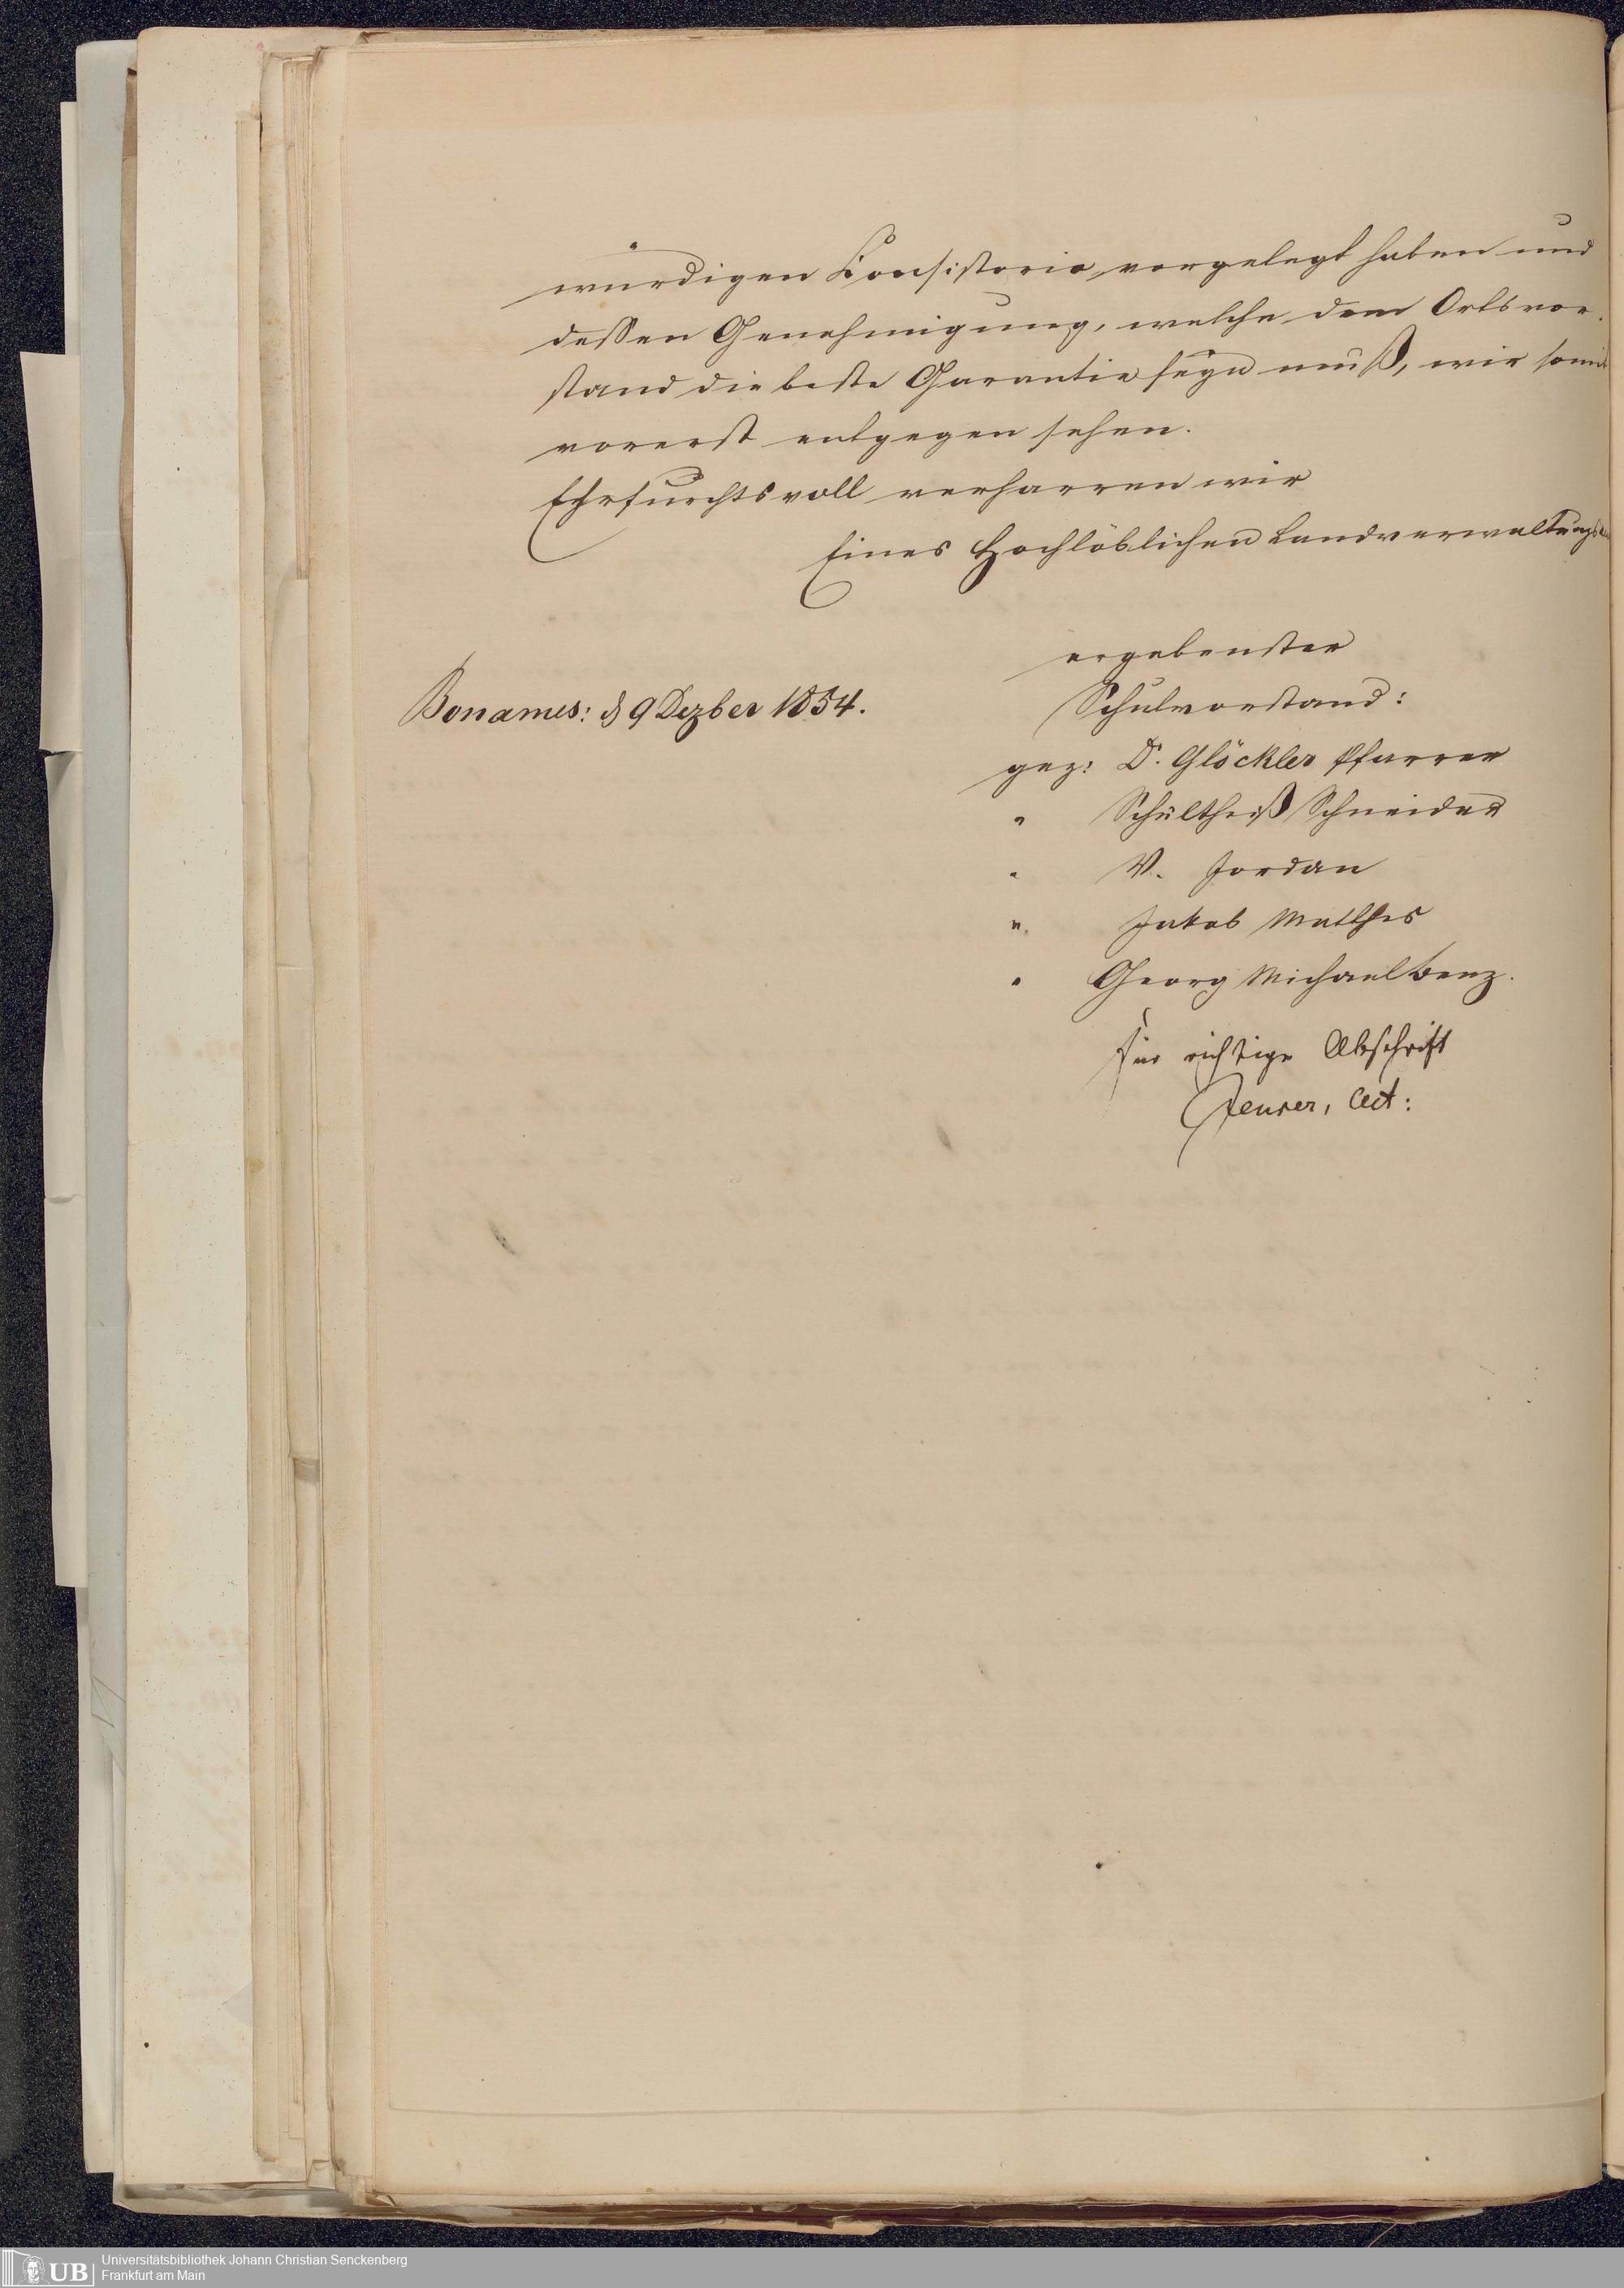 würdigen Konsistorio vorgelegt haben und
dessen Genehmigung, welche dem Ortsvor-
stand die beste Garantie seyn muß, wir somit
vorerst entgegen sehen.
Ehrfurchtsvoll verharren wir
Eines Hochlöblichen
ergebenster
Schulvorstand:
Bonames: d 9 Dezber 1854.
gez: Dr. Glöckler Pfarrer
" Schultheiß Schneider
" W. Jordan
" Jakob Matthes
" Georg Michael Benz.
für richtige Abschrift
Act:
UB
Universitätsbibliothek Johann Christian Senckenberg
Frankfurt am Main